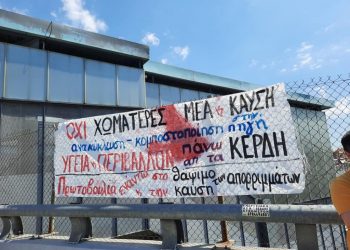 ΟΧΙ ΧΩΜΑΤΕΡΕΣ ΜΕΑ & ΚΑΥΣΗ
ανακύκλωση - κομποστοποίηση στην πηγή
ΥΓΕΙΑ & ΠΕΡΙΒΑΛΛΟΝ πάνω απ' τα ΚΕΡΔΗ
Πρωτοβουλία ενάντια στο θάψιμο
& την καύση των απορριμμάτων